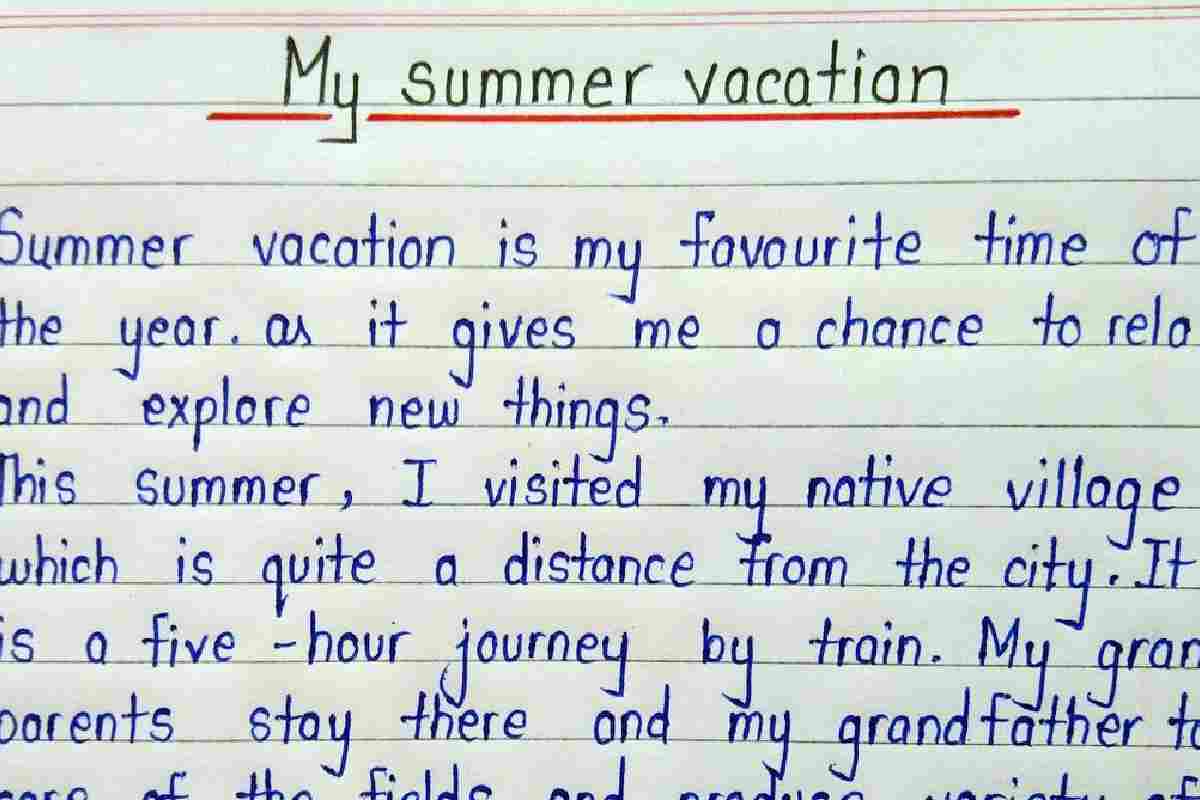 My summer vacation
Summer vacation is my favourite time of
the year. as it gives me a chance to rela
and explore new things.
This summer, I visited my native village
which is quite a distance from the city. It
is a five-hour journey by train. My gran
parents stay there and my grandfather ta
care of the fields and produce variety of